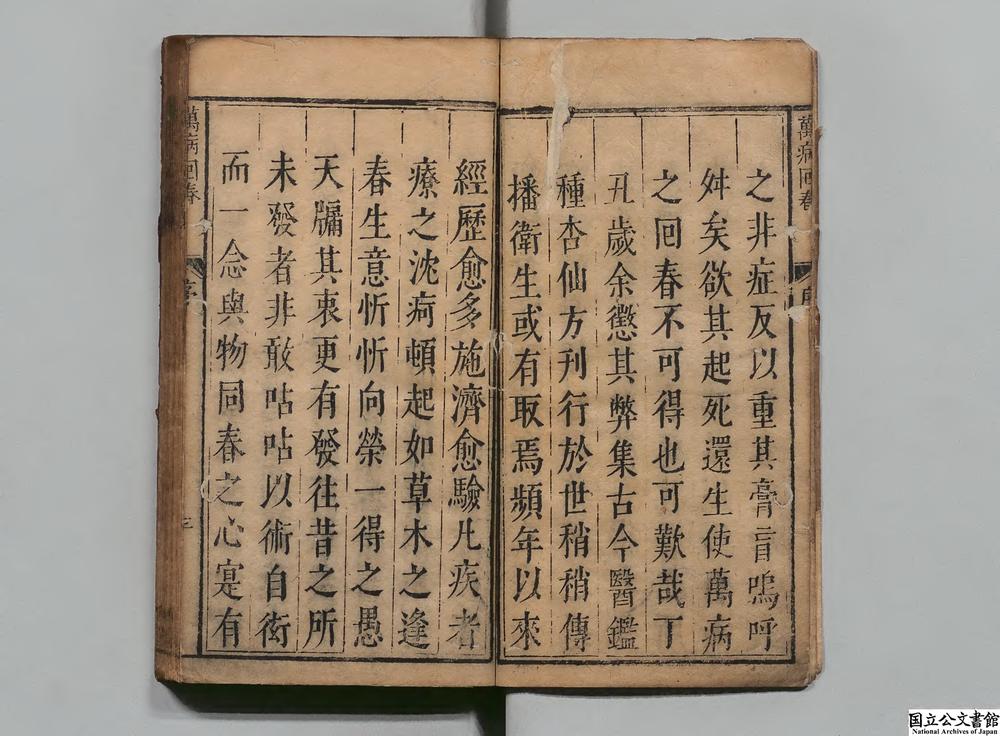 萬病回春
序
之非症反以重其膏肓嗚呼
舛矣欲其起死還生使萬病
之回春不可得也可歎哉丁
丑歲余懲其弊集古今醫鑑
種杏仙方刊行於世稍稍傳
播衛生或有取焉頻年以來
經歷愈多施濟愈驗凡疾者
療之沈疴頓起如草木之逢
春生意忻忻向榮一得之愚
天牖其衷更有發徃昔之所
未發者非敢呫呫以術自衒
而一念與物同春之心寔有
萬病回春
序
三
国立公文書館
National Archives of Japan